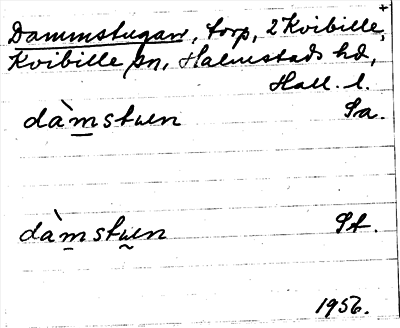 Dammstugan, torp, 2 Kvibille, +
Kvibille sn, Halmstads hd,
Hall. l.
dàm̲stuen Sa.
dàm̲stu̲en St.
1956.